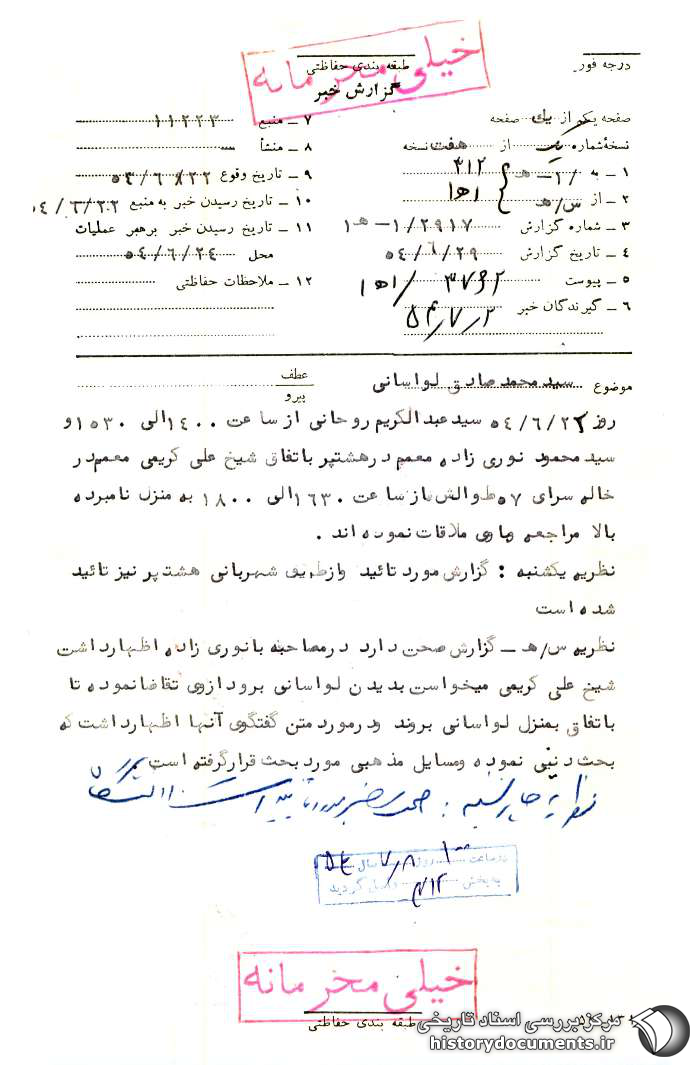 خیلی محرمانه
درجه فوریت
طبقه بندی حفاظتی
گزارش خبر
صفحه یکم از یك صفحه
نسخهٔ شماره یک از هفت نسخه
۱ ــ به ۳۱۲
۲ ــ از س/هـ ۱ه۱
۳ ــ شماره گزارش ۲۹۱۷/۱ــ هـ۱
۴ ــ تاریخ گزارش ۵۴/۶/۲۹
۵ ــ پیوست
۶ ــ گیرندگان خبر ۵۴/۷/۲
۷ ــ منبع ۱۱۲۲۳
۸ ــ منشأ
۹ ــ تاریخ وقوع
۱۰ ــ تاریخ رسیدن خبر به منبع ۵۴/۶/۲۲
۱۱ ــ تاریخ رسیدن خبر برهبر عملیات
محل ۵۴/۶/۲۴
۱۲ ــ ملاحظات حفاظتی
موضوع سید محمد صادق لواسانی
عطف
پیرو
روز ۵۴/۶/۲۲ سید عبدالکریم روحانی از ساعت ۱۴۰۰ الی ۱۵۳۰ و
سید محمود نوری زاده معمم در هشتپر باتفاق شیخ علی کریمی معمم در
خاله سرای ۵۷ طوالش از ساعت ۱۶۳۰ الی ۱۸۰۰ به منزل نامبرده
بالا مراجعه و باوی ملاقات نموده اند .
نظریه یکشنبه : گزارش مورد تائید و از طریق شهربانی هشتپر نیز تائید
شده است
نظریه س/هـ ــ گزارش صحت دارد در مصاحبه با نوری زاده اظهار داشت
شیخ علی کریمی میخواست بدیدن لواسانی برود از وی تقاضا نموده تا
باتفاق بمنزل لواسانی بروند و در مورد متن گفتگوی آنها اظهار داشت که
بحث دینی نموده و مسایل مذهبی مورد بحث قرار گرفته است
نظریه چهارشنبه : صحت خبر مورد تایید است
در ساعت ۱۰۰۰ روز ۷/۸ سال ۵۴
به بخش ۳۱۲ واصل گردید
خیلی محرمانه
طبقه بندی حفاظتی
مرکز بررسی اسناد تاریخی
historydocuments.ir